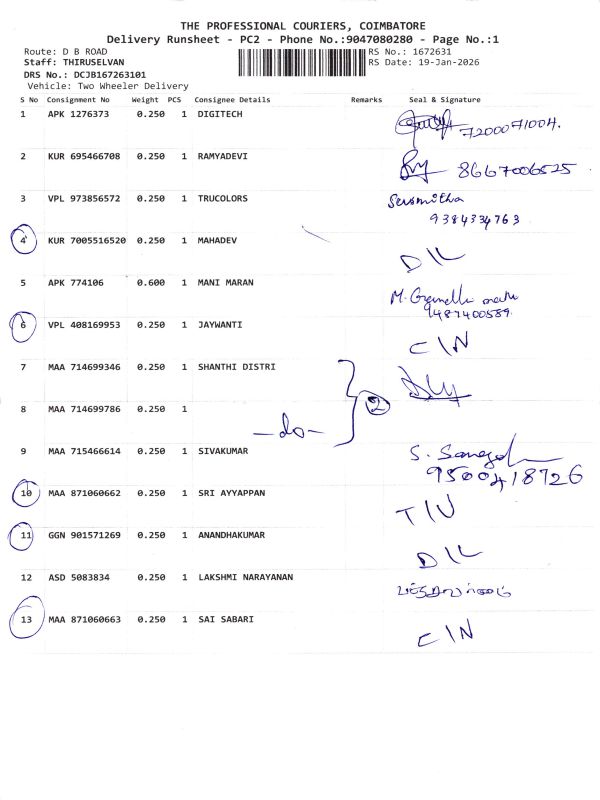 THE PROFESSIONAL COURIERS, COIMBATORE
Delivery Runsheet - PC2 - Phone No.:9047080280 - Page No.:1
Route: D B ROAD RS No.: 1672631
Staff: THIRUSELVAN RS Date: 19-Jan-2026
DRS No.: DCJB167263101
Vehicle: Two Wheeler Delivery
S No Consignment No Weight PCS Consignee Details Remarks Seal & Signature
1 APK 1276373 0.250 1 DIGITECH 7200071004.
2 KUR 695466708 0.250 1 RAMYADEVI 8667006525
3 VPL 973856572 0.250 1 TRUCOLORS Susmitha
9384334763
4 KUR 7005516520 0.250 1 MAHADEV D\L
5 APK 774106 0.600 1 MANI MARAN M.
9487400589
6 VPL 408169953 0.250 1 JAYWANTI C\N
7 MAA 714699346 0.250 1 SHANTHI DISTRI
8 MAA 714699786 0.250 1 -do- 2
9 MAA 715466614 0.250 1 SIVAKUMAR S.
9500418726
10 MAA 871060662 0.250 1 SRI AYYAPPAN
11 GGN 901571269 0.250 1 ANANDHAKUMAR D\L
12 ASD 5083834 0.250 1 LAKSHMI NARAYANAN
13 MAA 871060663 0.250 1 SAI SABARI C\N